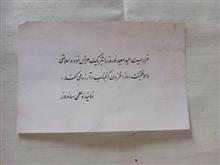 فرارسیدن عید سعید نوروز را تبریک عرض نموده سلامتی
و موفقیت روز افزون آنجناب را آرزو می‌کند.
نماینده